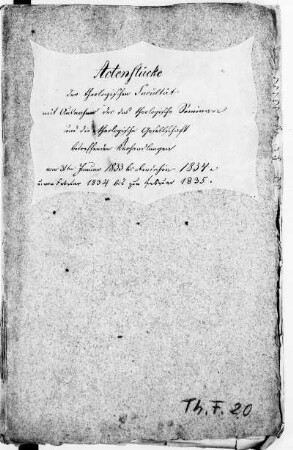 Actenstücke
der theologischen Facultät
mit Ausnahme der das theologische Seminar
und die theologische Gesellschaft
betreffenden Verhandlungen
vom Januar 1833 bis 1834
vom Februar 1834 bis zum Februar 1835.
Th. F. 20